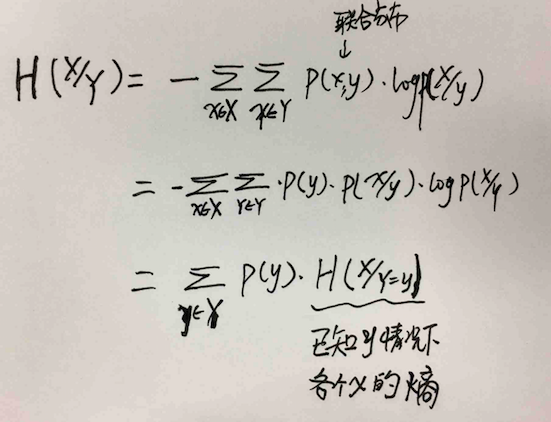 联合分布
↓
H(X/Y) = - ∑x∈X ∑y∈Y P(x,y)·logp(x/y)
= - ∑x∈X ∑Y∈Y ·P(y)·P(x/y)·logP(x/y)
= ∑y∈Y P(y)·H(X/Y=y)
已知y情况下
各个x的熵